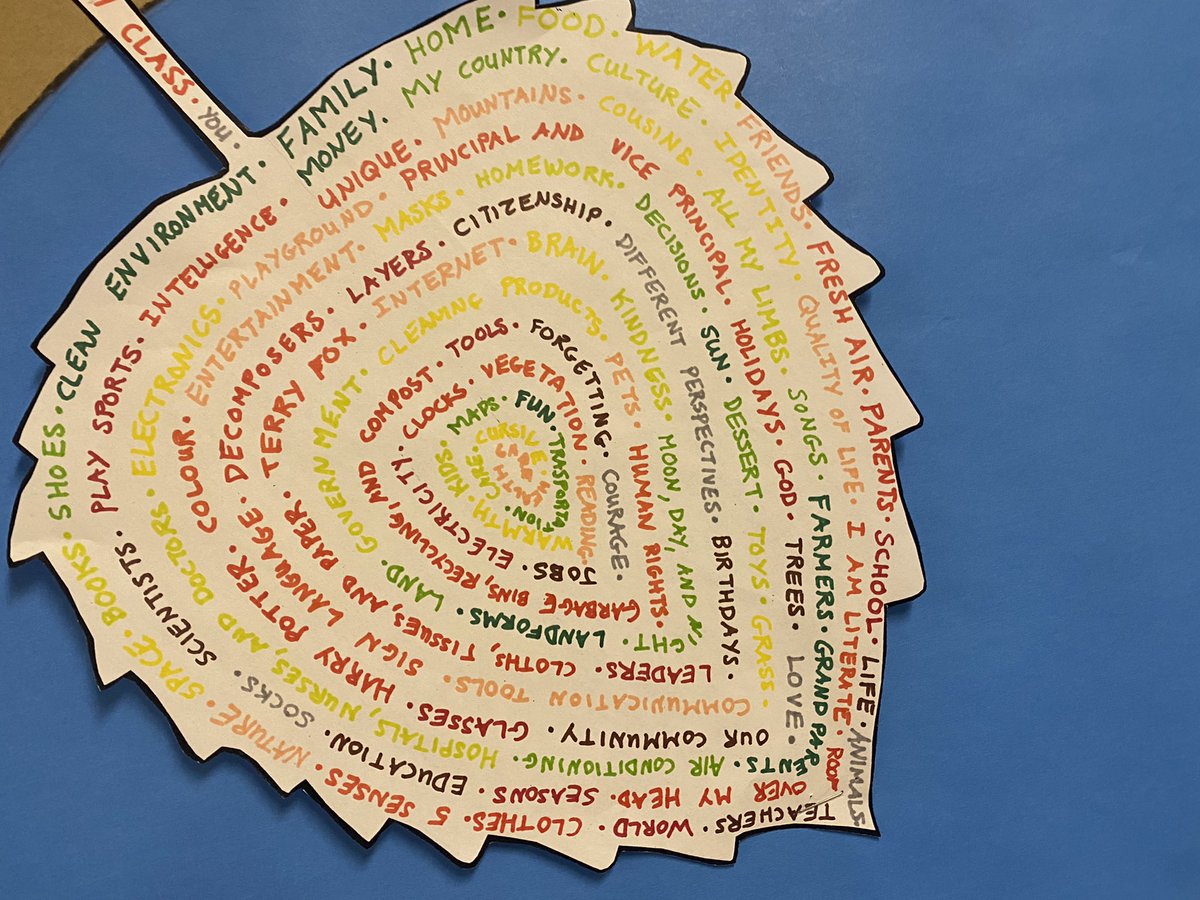 CLASS · YOU ·
FAMILY · HOME · FOOD · WATER · FRIENDS · FRESH AIR · PARENTS · SCHOOL · LIFE · ANIMALS · TEACHERS · WORLD · CLOTHES · 5 SENSES · NATURE · SPACE · BOOKS · SHOES · CLEAN ENVIRONMENT ·
MONEY · MY COUNTRY · CULTURE · IDENTITY · QUALITY OF LIFE · I AM LITERATE · ROOF OVER MY HEAD · SEASONS · EDUCATION · SOCKS · SCIENTISTS · PLAY SPORTS · INTELLIGENCE ·
UNIQUE · MOUNTAINS · COUSINS · ALL MY LIMBS · SONGS · FARMERS · GRANDPARENTS · AIR CONDITIONING · HOSPITALS, NURSES, AND DOCTORS · ELECTRONICS · PLAYGROUND ·
PRINCIPAL AND VICE PRINCIPAL · HOLIDAYS · GOD · TREES · LOVE · OUR COMMUNITY · GLASSES · HARRY POTTER · COLOUR · ENTERTAINMENT ·
MASKS · HOMEWORK · DECISIONS · SUN · DESSERT · TOYS · GRASS · COMMUNICATION TOOLS · SIGN LANGUAGE · DECOMPOSERS ·
LAYERS · CITIZENSHIP · DIFFERENT PERSPECTIVES · BIRTHDAYS · LEADERS · CLOTHS, TISSUES, AND PAPER · TERRY FOX ·
INTERNET · BRAIN · KINDNESS · MOON, DAY, AND NIGHT · LANDFORMS · LAND · GOVERNMENT ·
CLEANING PRODUCTS · PETS · HUMAN RIGHTS · GARBAGE BINS, RECYCLING, AND COMPOST ·
TOOLS · FORGETTING · COURAGE · JOBS · ELECTRICITY · CLOCKS ·
VEGETATION · READING · WARMTH · KIDS · MAPS ·
FUN · TRASPORTATION · CARE ·
CURSIVE · HEALTH CARE